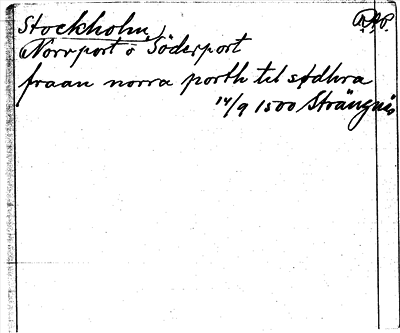 Stockholm R.A.P.
Norrport o Söderport
fraan norra porth til sødhra
14/9 1500 Strängnäs